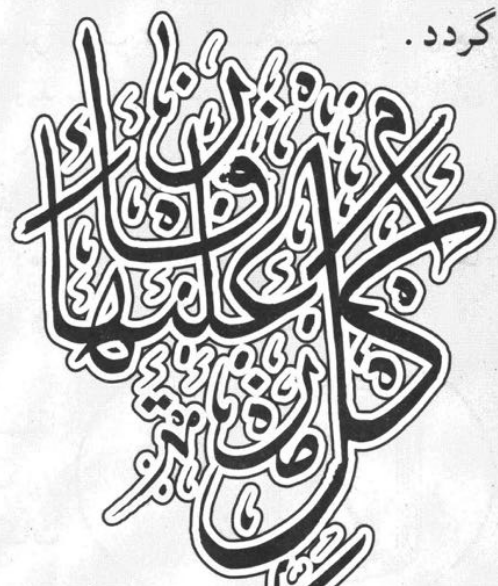 گردد .
كل من عليها فان